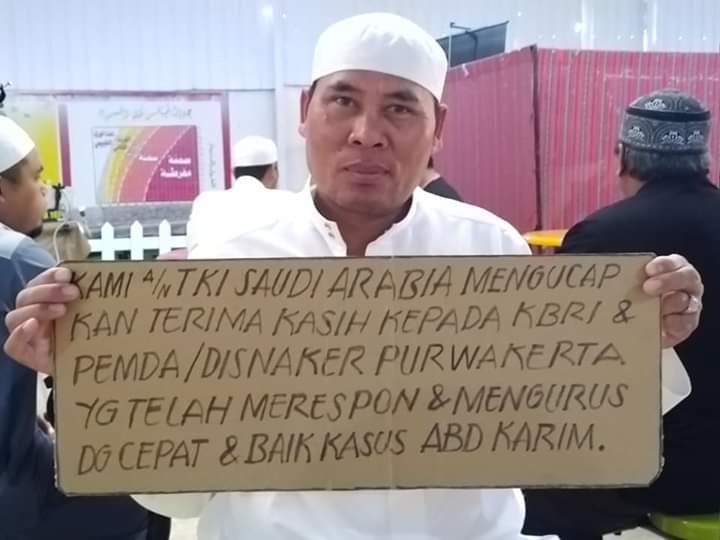 KAMI A/N TKI SAUDI ARABIA MENGUCAP
KAN TERIMA KASIH KEPADA KBRI &
PEMDA/DISNAKER PURWAKERTA
YG TELAH MERESPON & MENGURUS
DG CEPAT & BAIK KASUS ABD KARIM.